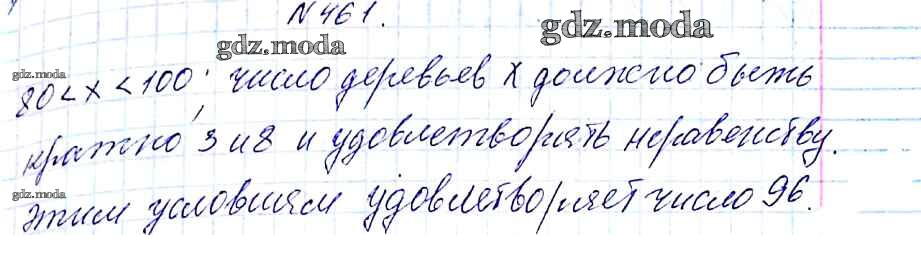 N 461.
gdz.moda
gdz.moda
gdz.moda
80 < x < 100, число деревьев x должно быть
кратно 3 и 8 и удовлетворять неравенству.
gdz.moda
Этим условиям удовлетворяет число 96.